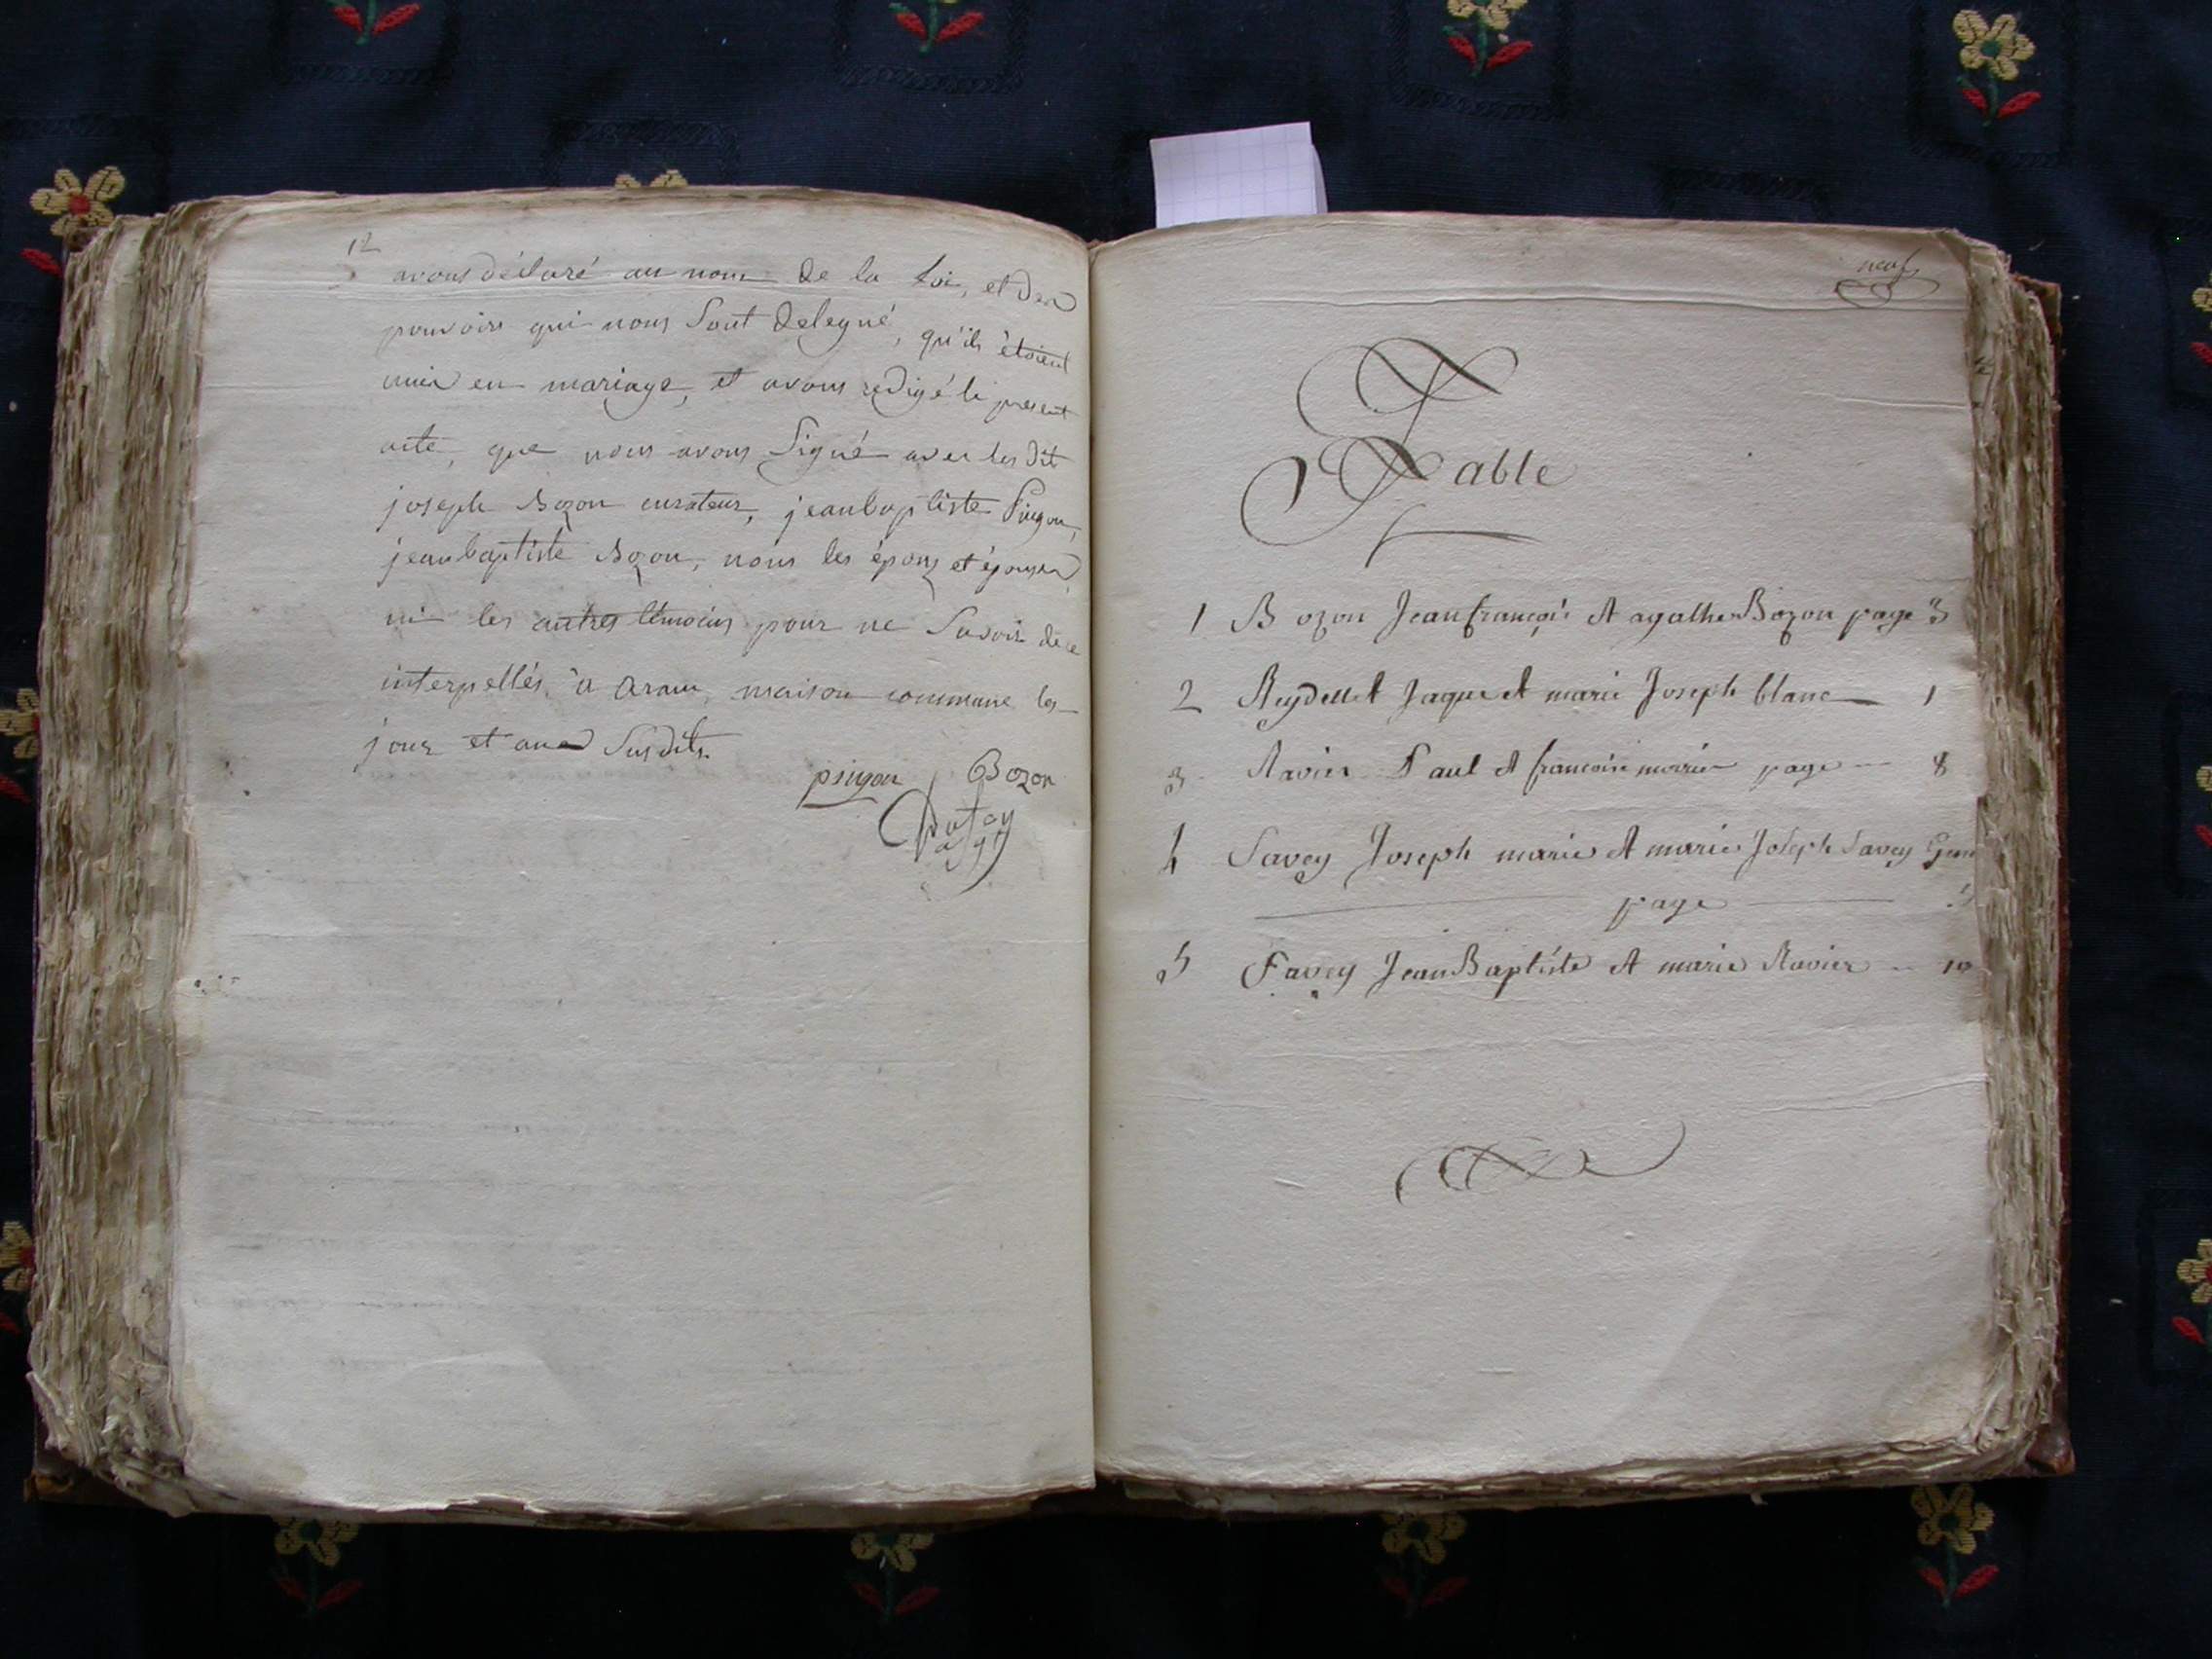 12
avons déclaré au nom de la loi, et des
pouvoirs qui nous sont delegué, qu'ils étoient
unis en mariage, et avons redigé le present
acte, que nous avons signé avec les dit
joseph Bozon curateur, jeanbaptiste Pingon,
jeanbaptiste Bozon, nous les époux et épouses,
ni les autres témoins pour ne savoir de ce
interpellés, à aram, maison commune les
jour et an susdits.
pingon Bozon
neuf
Table
1 Bozon Jeanfrançois et agathe Bozon page 3
2 Reydellet Jaque et marie Joseph blanc 1
3 Ravier Paul et francoise marie page 8
4 Savey Joseph marie et marie Joseph Savey
page 5
5 Savey Jean Baptiste et marie Ravier 10